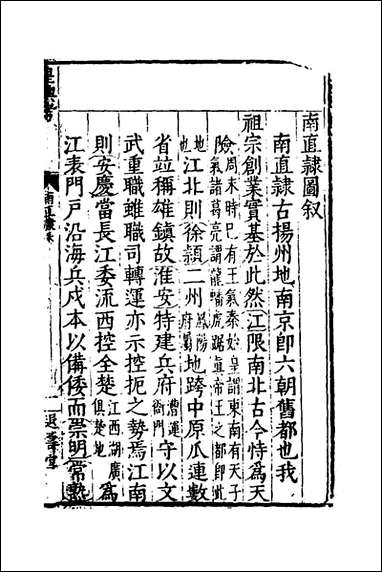 南直隸圖叙
南直隸古揚州地南京即六朝舊都也我
祖宗創業實基於此然江限南北古今恃爲天
險周末時巳有王氣秦始皇謂東南有天子
氣諸葛亮謂龍蟠虎踞眞帝王之都即此
地江北則徐潁二州鳳陽府屬地跨中原瓜連數
省竝稱雄鎮故淮安特建兵府漕運衙門守以文
武重職雖職司轉運亦示控扼之勢焉江南
則安慶當長江委流西控全楚江西湖廣俱楚地爲
江表門戸沿海兵戍本以備倭而崇明常熟